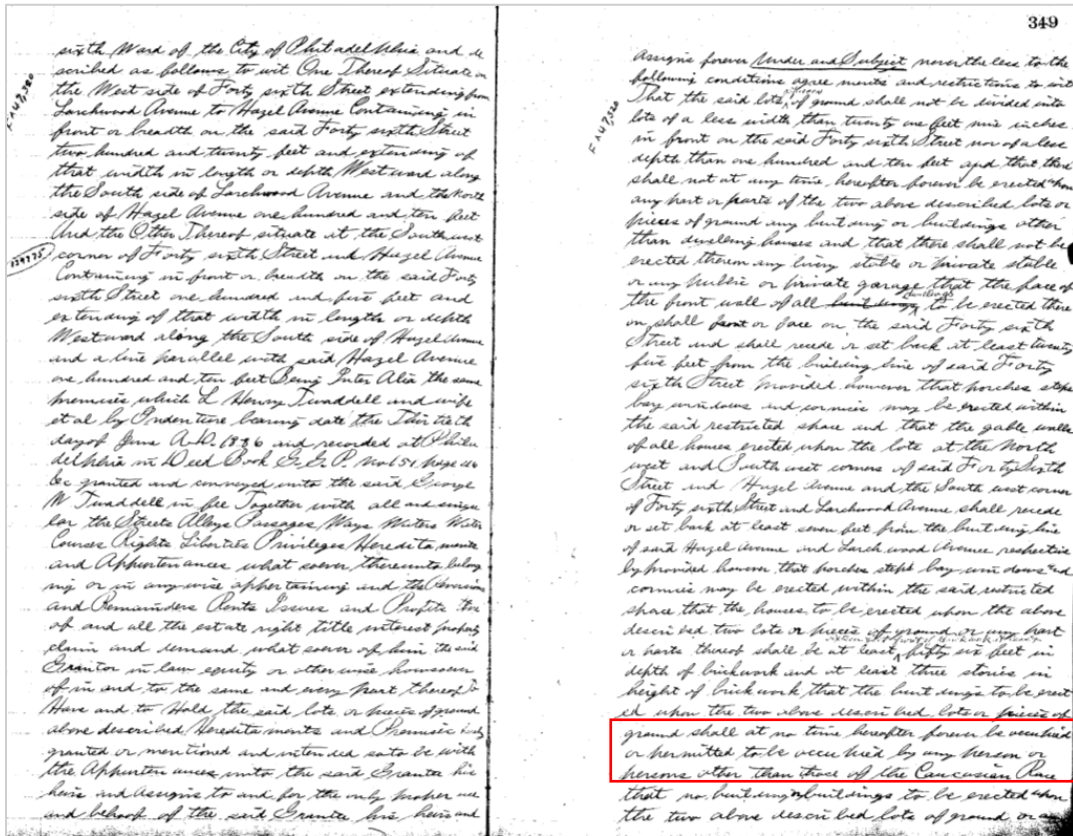 sixth Ward of the City of Philadelphia and de
scribed as follows to wit One Thereof Situate on
the West side of Forty sixth Street extending from
Larchwood Avenue to Hazel Avenue Containing in
front or breadth on the said Forty sixth Street
two hundred and twenty feet and extending of
that width in length or depth Westward along
the South side of Larchwood Avenue and the North
side of Hazel Avenue one hundred and ten feet
And the Other Thereof situate at the Southwest
corner of Forty sixth Street and Hazel Avenue
Containing in front or breadth on the said Forty
sixth Street one hundred and five feet and
extending of that width in length or depth
Westward along the South side of Hazel Avenue
and a line parallel with said Hazel Avenue
one hundred and ten feet Being Inter Alia the same
premises which L Henry Twaddell and wife
et al by Indenture bearing date the Thirtieth
day of June A.D. 1886 and recorded at Phila
delphia in Deed Book G.G.P. No 151 page
&c granted and conveyed unto the said George
W Twaddell in fee Together with all and singu
lar the Streets Alleys Passages Ways Waters Water
Courses Rights Liberties Privileges Heredita ments
and Appurtenances what soever thereunto belong
ing or in any wise appertaining and the Reversions
and Remainders Rents Issues and Profits there
of and all the estate right title interest property
claim and demand what soever of him the said
Grantor in law equity or otherwise howsoever
of in and to the same and every part thereof To
Have and to Hold the said lots or pieces of ground
above described Heredita ments and Premises hereby
granted or mentioned and intended so to be with
the Appurtenances unto the said Grantee his
heirs and Assigns to and for the only proper use
and behoof of the said Grantee his heirs and
349
Assigns forever Under and Subject never the less to the
following conditions agree ments and restrictions to wit
That the said lots of ground shall not be divided into
lots of a less width than twenty one feet nine inches
in front on the said Forty sixth Street nor of a less
depth than one hundred and ten feet and that there
shall not at any time hereafter forever be erected upon
any part or parts of the two above described lots or
pieces of ground any building or buildings other
than dwelling houses and that there shall not be
erected thereon any livery stable or private stable
or any public or private garage that the face of
the front wall of all buildings to be erected there
on shall front or face on the said Forty sixth
Street and shall recede or set back at least twenty
five feet from the building line of said Forty
sixth Street Provided however that porches steps
bay windows and cornices may be erected within
the said restricted space and that the gable walls
of all houses erected upon the lots at the North
west and South west corners of said Forty Sixth
Street and Hazel Avenue and the South west corner
of Forty sixth Street and Larchwood Avenue shall recede
or set back at least seven feet from the building line
of said Hazel Avenue and Larchwood Avenue respective
ly provided however that porches steps bay windows and
cornices may be erected within the said restricted
space that the houses to be erected upon the above
described two lots or pieces of ground or any part
or parts thereof shall be at least fifty six feet in
depth of brickwork and at least three stories in
height of brickwork that the buildings to be erect
ed upon the two above described lots or pieces of
ground shall at no time hereafter forever be occupied
or permitted to be occupied by any person or
persons other than those of the Caucasian Race
that no building or buildings to be erected upon
the two above described lots of ground or any